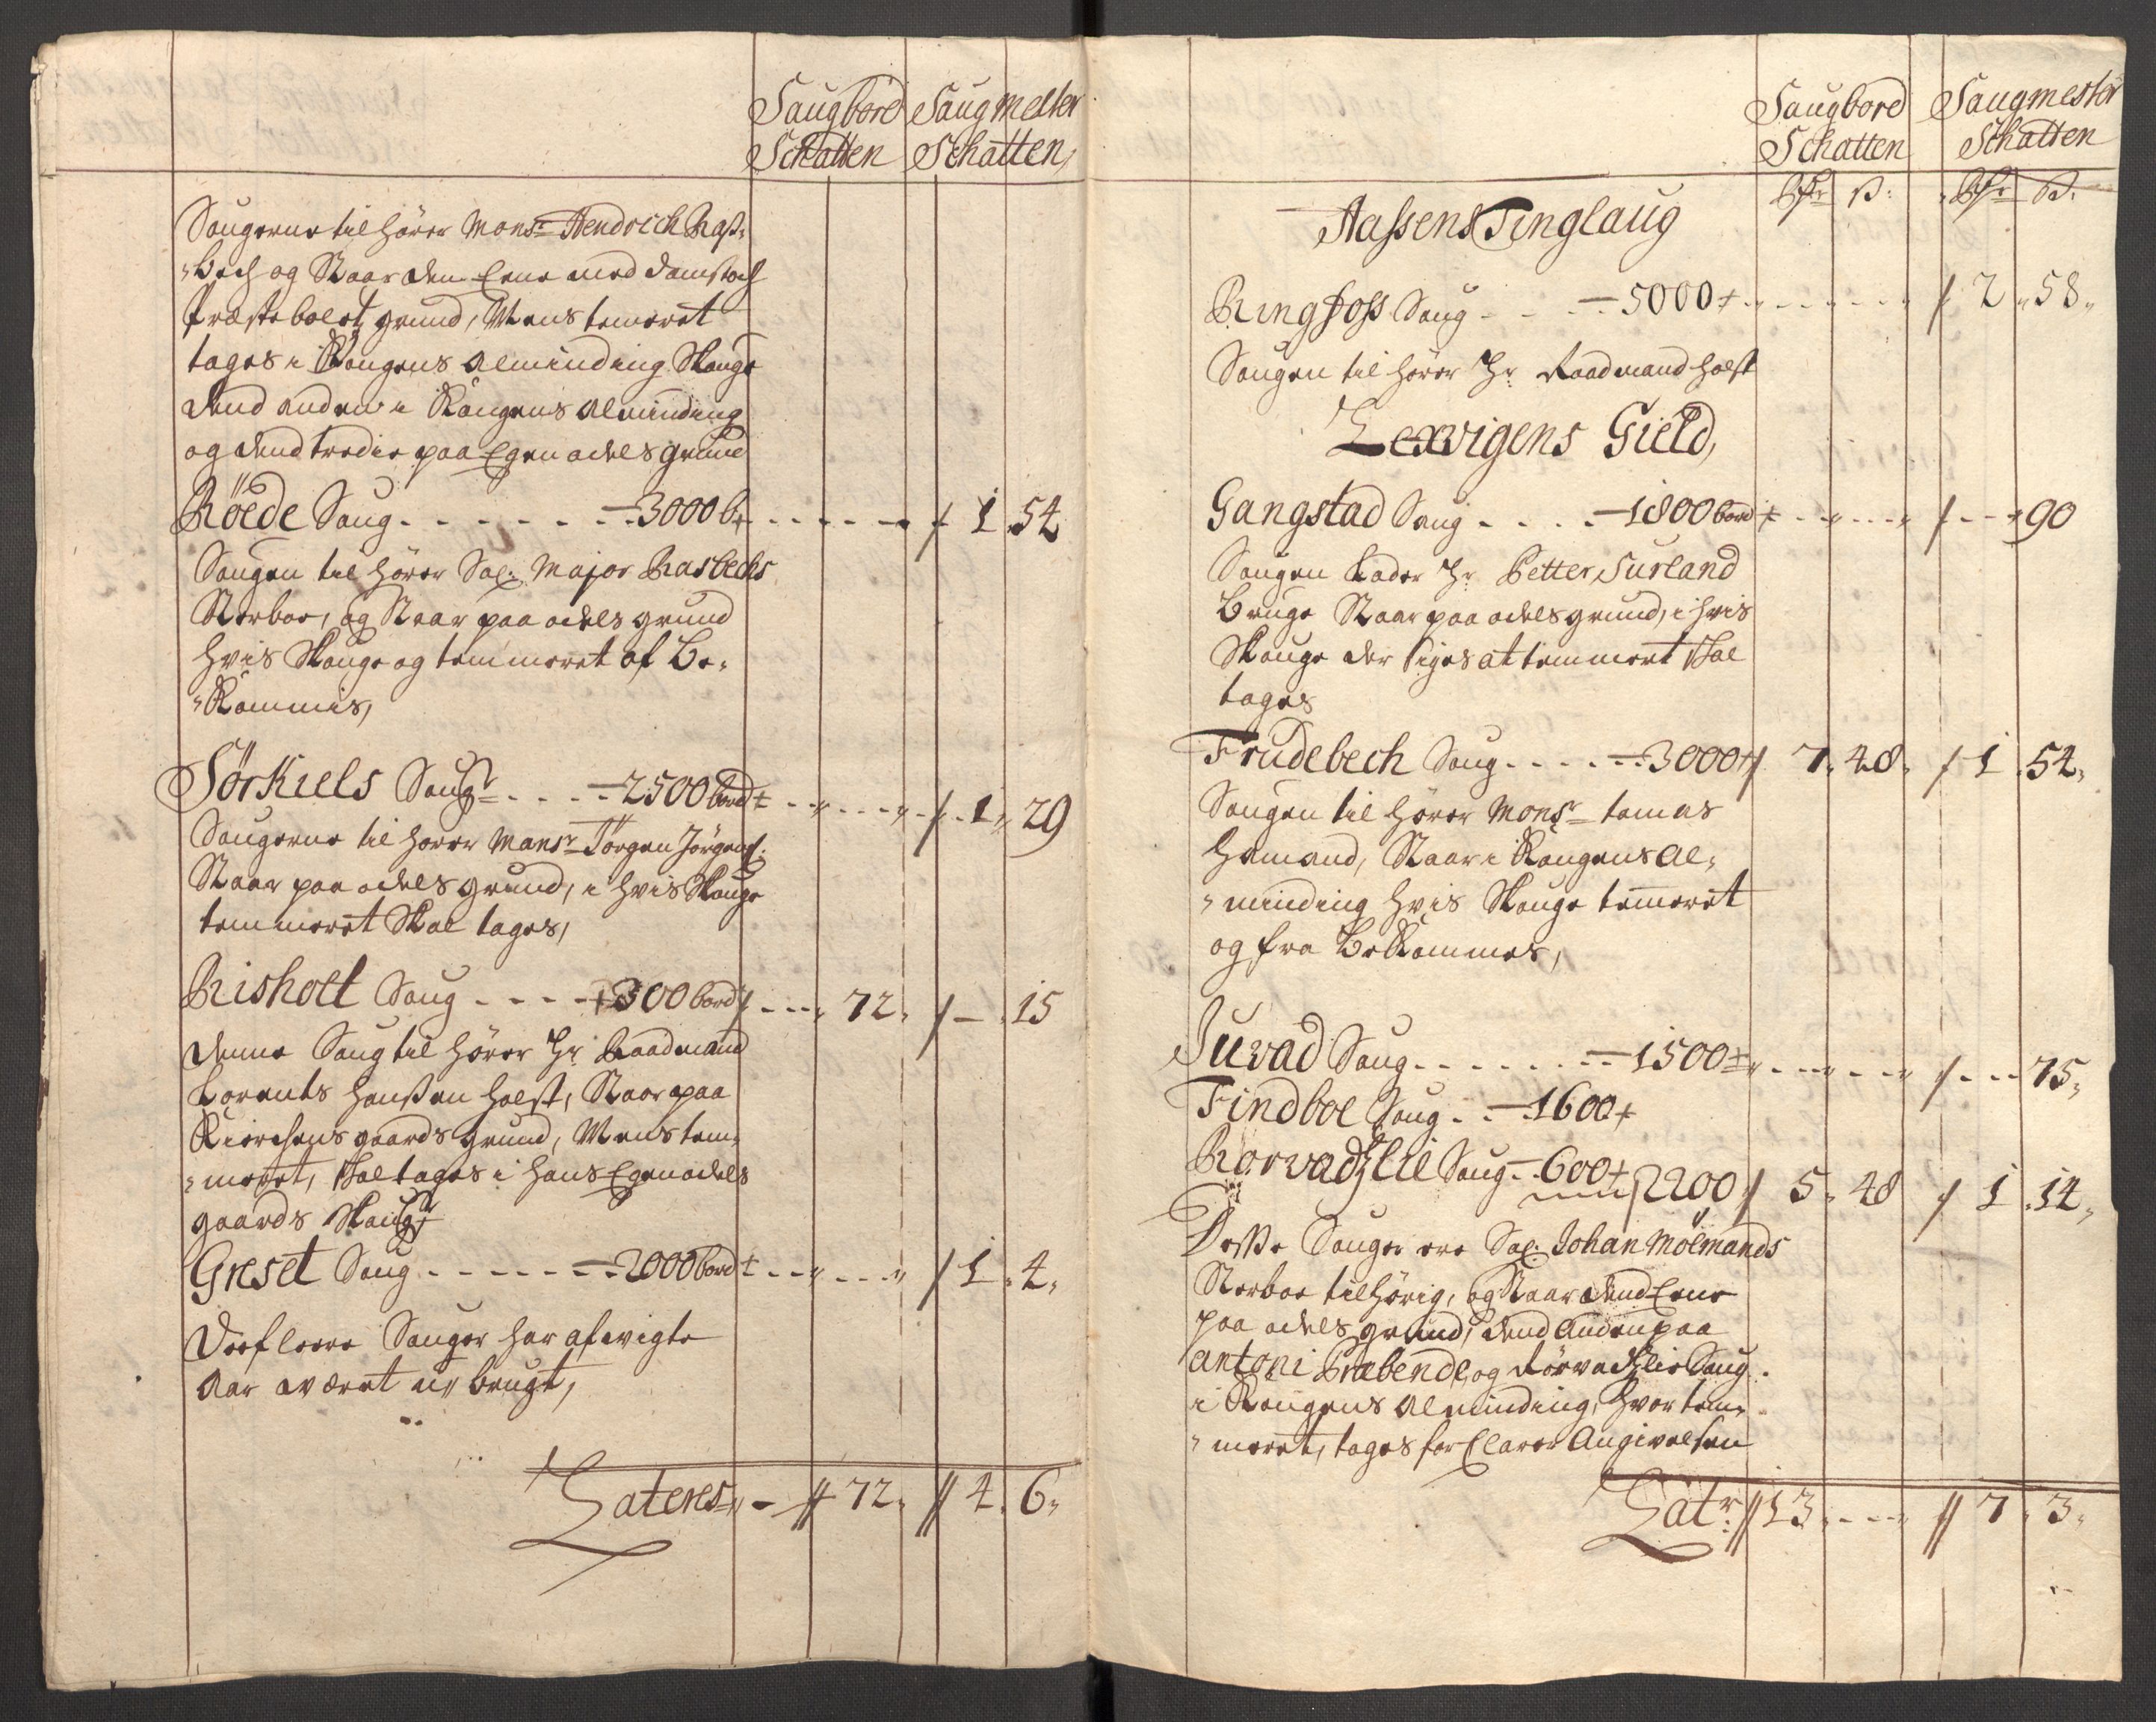 Saugbord Saugmester
Schatten Schatten,
Saugerne til hörer Monsr Hendrich Rasz-
"bech og Staar den Eene med damstoch
Præstebolets grund, Mens temeret
tages i Kongens Alminding Skouge
dend anden i Kongens Alminding
og dend tredie paa Egen odels grund
Röede Saug - - - - - - - 3000 b - - - - - / 1. 54
Saugen til hörer Sal: Major Rasbechs
Sterboe, og Staar paa odels grund
hvis Skouge og temmeret af Be-
"kommis,
Sörkiels Saugr - - - - 2500 bord - - - - - / 1. 29
Saugerne til hörer Mansr Jörgen Jörgens:
Staar paa odels grund, i hvis Skouge
temmeret Skal tages,
Risholt Saug - - - - 300 bord / - - - 72. / - 15
Denne Saug til hörer Hr Raadmand
Lorents Hanssen Holst, Staar paa
gaards grund, Mens tem-
"meret, skal tages i hans Egen odels
gaards Skoug
Greset Saug - - - - - - 2000 bord - - - - - / 1. 4.
Disse Sauger har afvigte
Aar været u-brugt,
Lateres - // 72. // 4. 6.
Saugbord Saugmester
Schatten Schatten
Rdr ß: Rdr ß.
Aassens Tinglaug
Ringfoss Saug - - - - 5000 - - - - - / 2. 58.
Saugen til hörer Hr Raadmand Holst
Lexvigens Gield,
Gangstad Saug - - - - 1800 bord - - - - - / - - 90
Saugen lader Hr Petter Surland
Bruge Staar paa odels grund, i hvis
Skouge der siges at temmeret skal
tages
Frudebech Saug - - - - - 3000 / 7. 48. / 1. 54.
Saugen til hörer Monsr tomas
Hammand, Staar i Kongens Al-
"minding hvis Skouge temmeret
og fra Bekommes,
Juvad Saug - - - - - - - 1500 - - - - - / - - - 75.
Findboe Saug - - 1600
Rorvadzlie Saug - 600 2200 / 5. 48 / 1. 14.
Desse Sauger ere Sal: Johan Möemands
Sterboe tilhörig, og Staar dend Eene
paa odels grund, dend Anden paa
Antoni Præbende, og Rörvadzlie Saug
i Kongens Alminding, hvor tem-
"meret, tages forClarer Angivelsen
Latr: // 13. - - - // 7. 3.